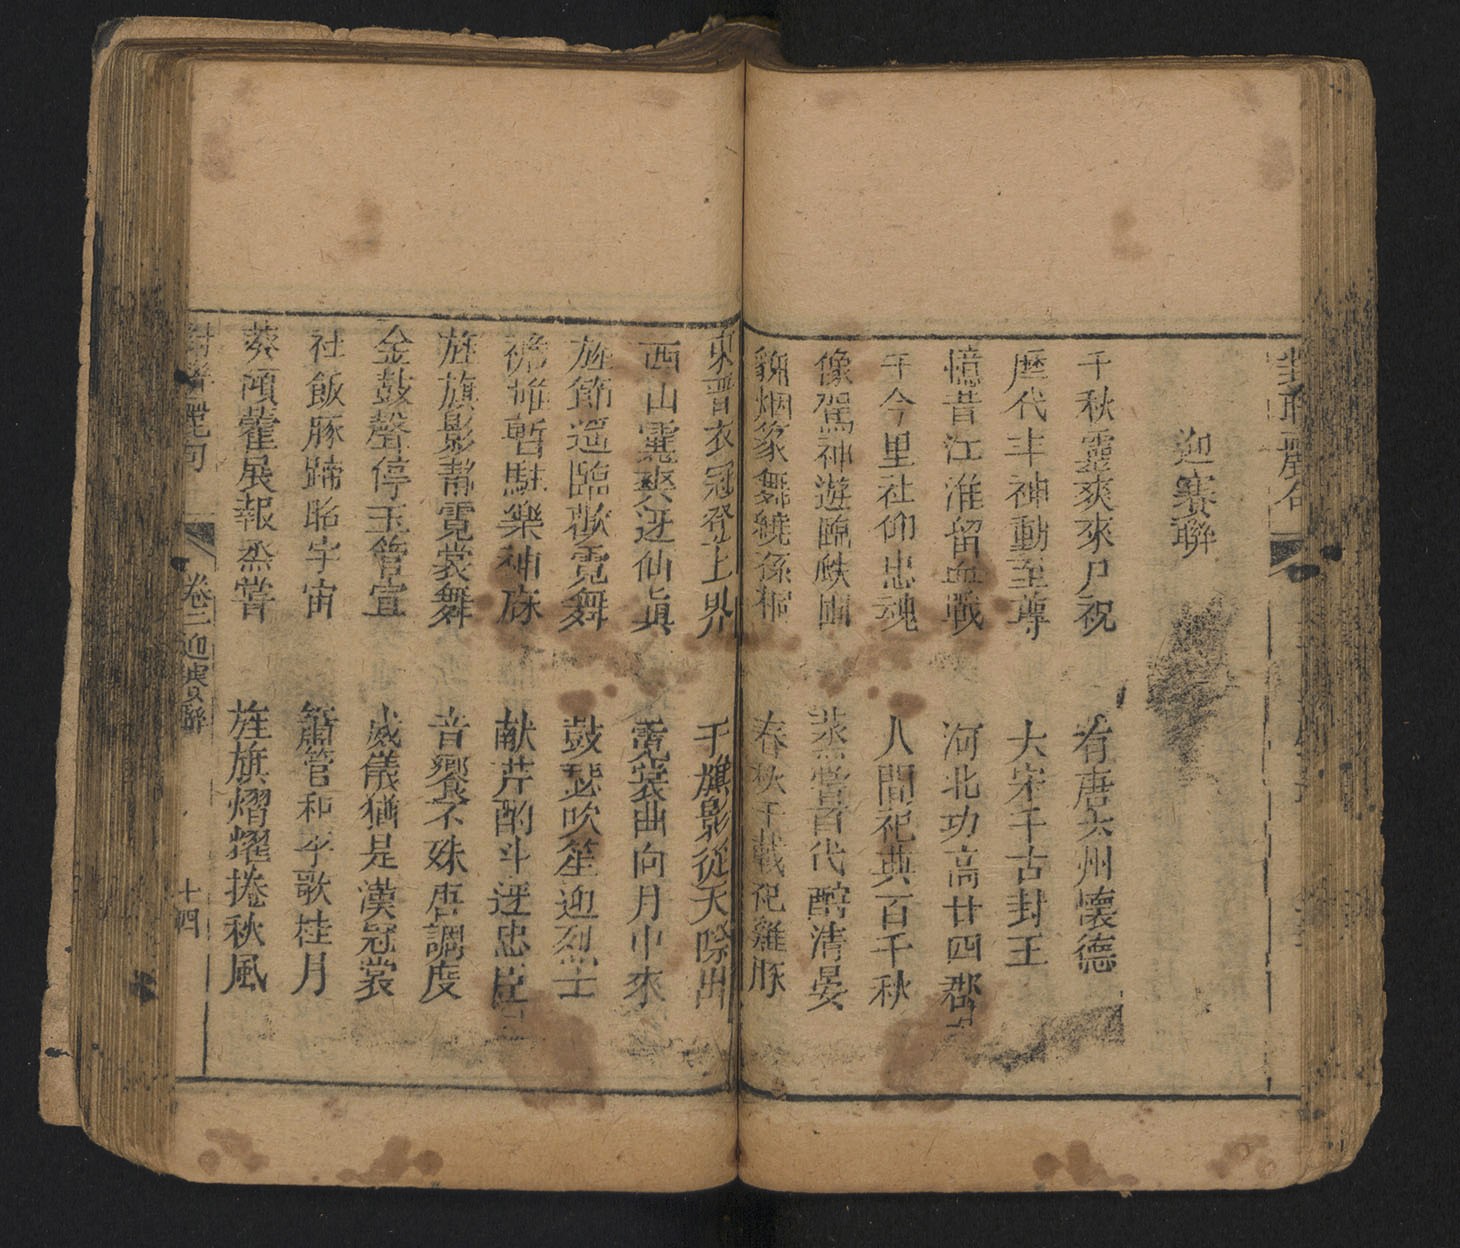 迎賽聯
千秋靈爽來尸祝 有唐六州懷德
歷代丰神動至尊 大宋千古封王
憶昔江淮留血戰 河北功高廿四郡
于今里社仰忠魂 人間祀典百千秋
像駕神遊臨 蒸嘗百代酹清晏
烟篆繞孫桐 春秋千載祀雞豚
東晋衣冠登上界 千旗影從天際出
西山靈爽迓仙眞 霓裳曲向月中來
旌節遥臨歌霓舞 鼓瑟吹笙迎烈士
襜帷暫駐樂神庥 献芹酌斗迓忠臣
旌旗影靜霓裳舞 音響不殊唐調度
金鼓聲停玉管宣 威儀猶是漢冠裳
社飯豚蹄昭宇宙 簫管和平歌桂月
葵頃藿展報烝嘗 旌旗熠耀捲秋風
卷三 迎賽聯
十四